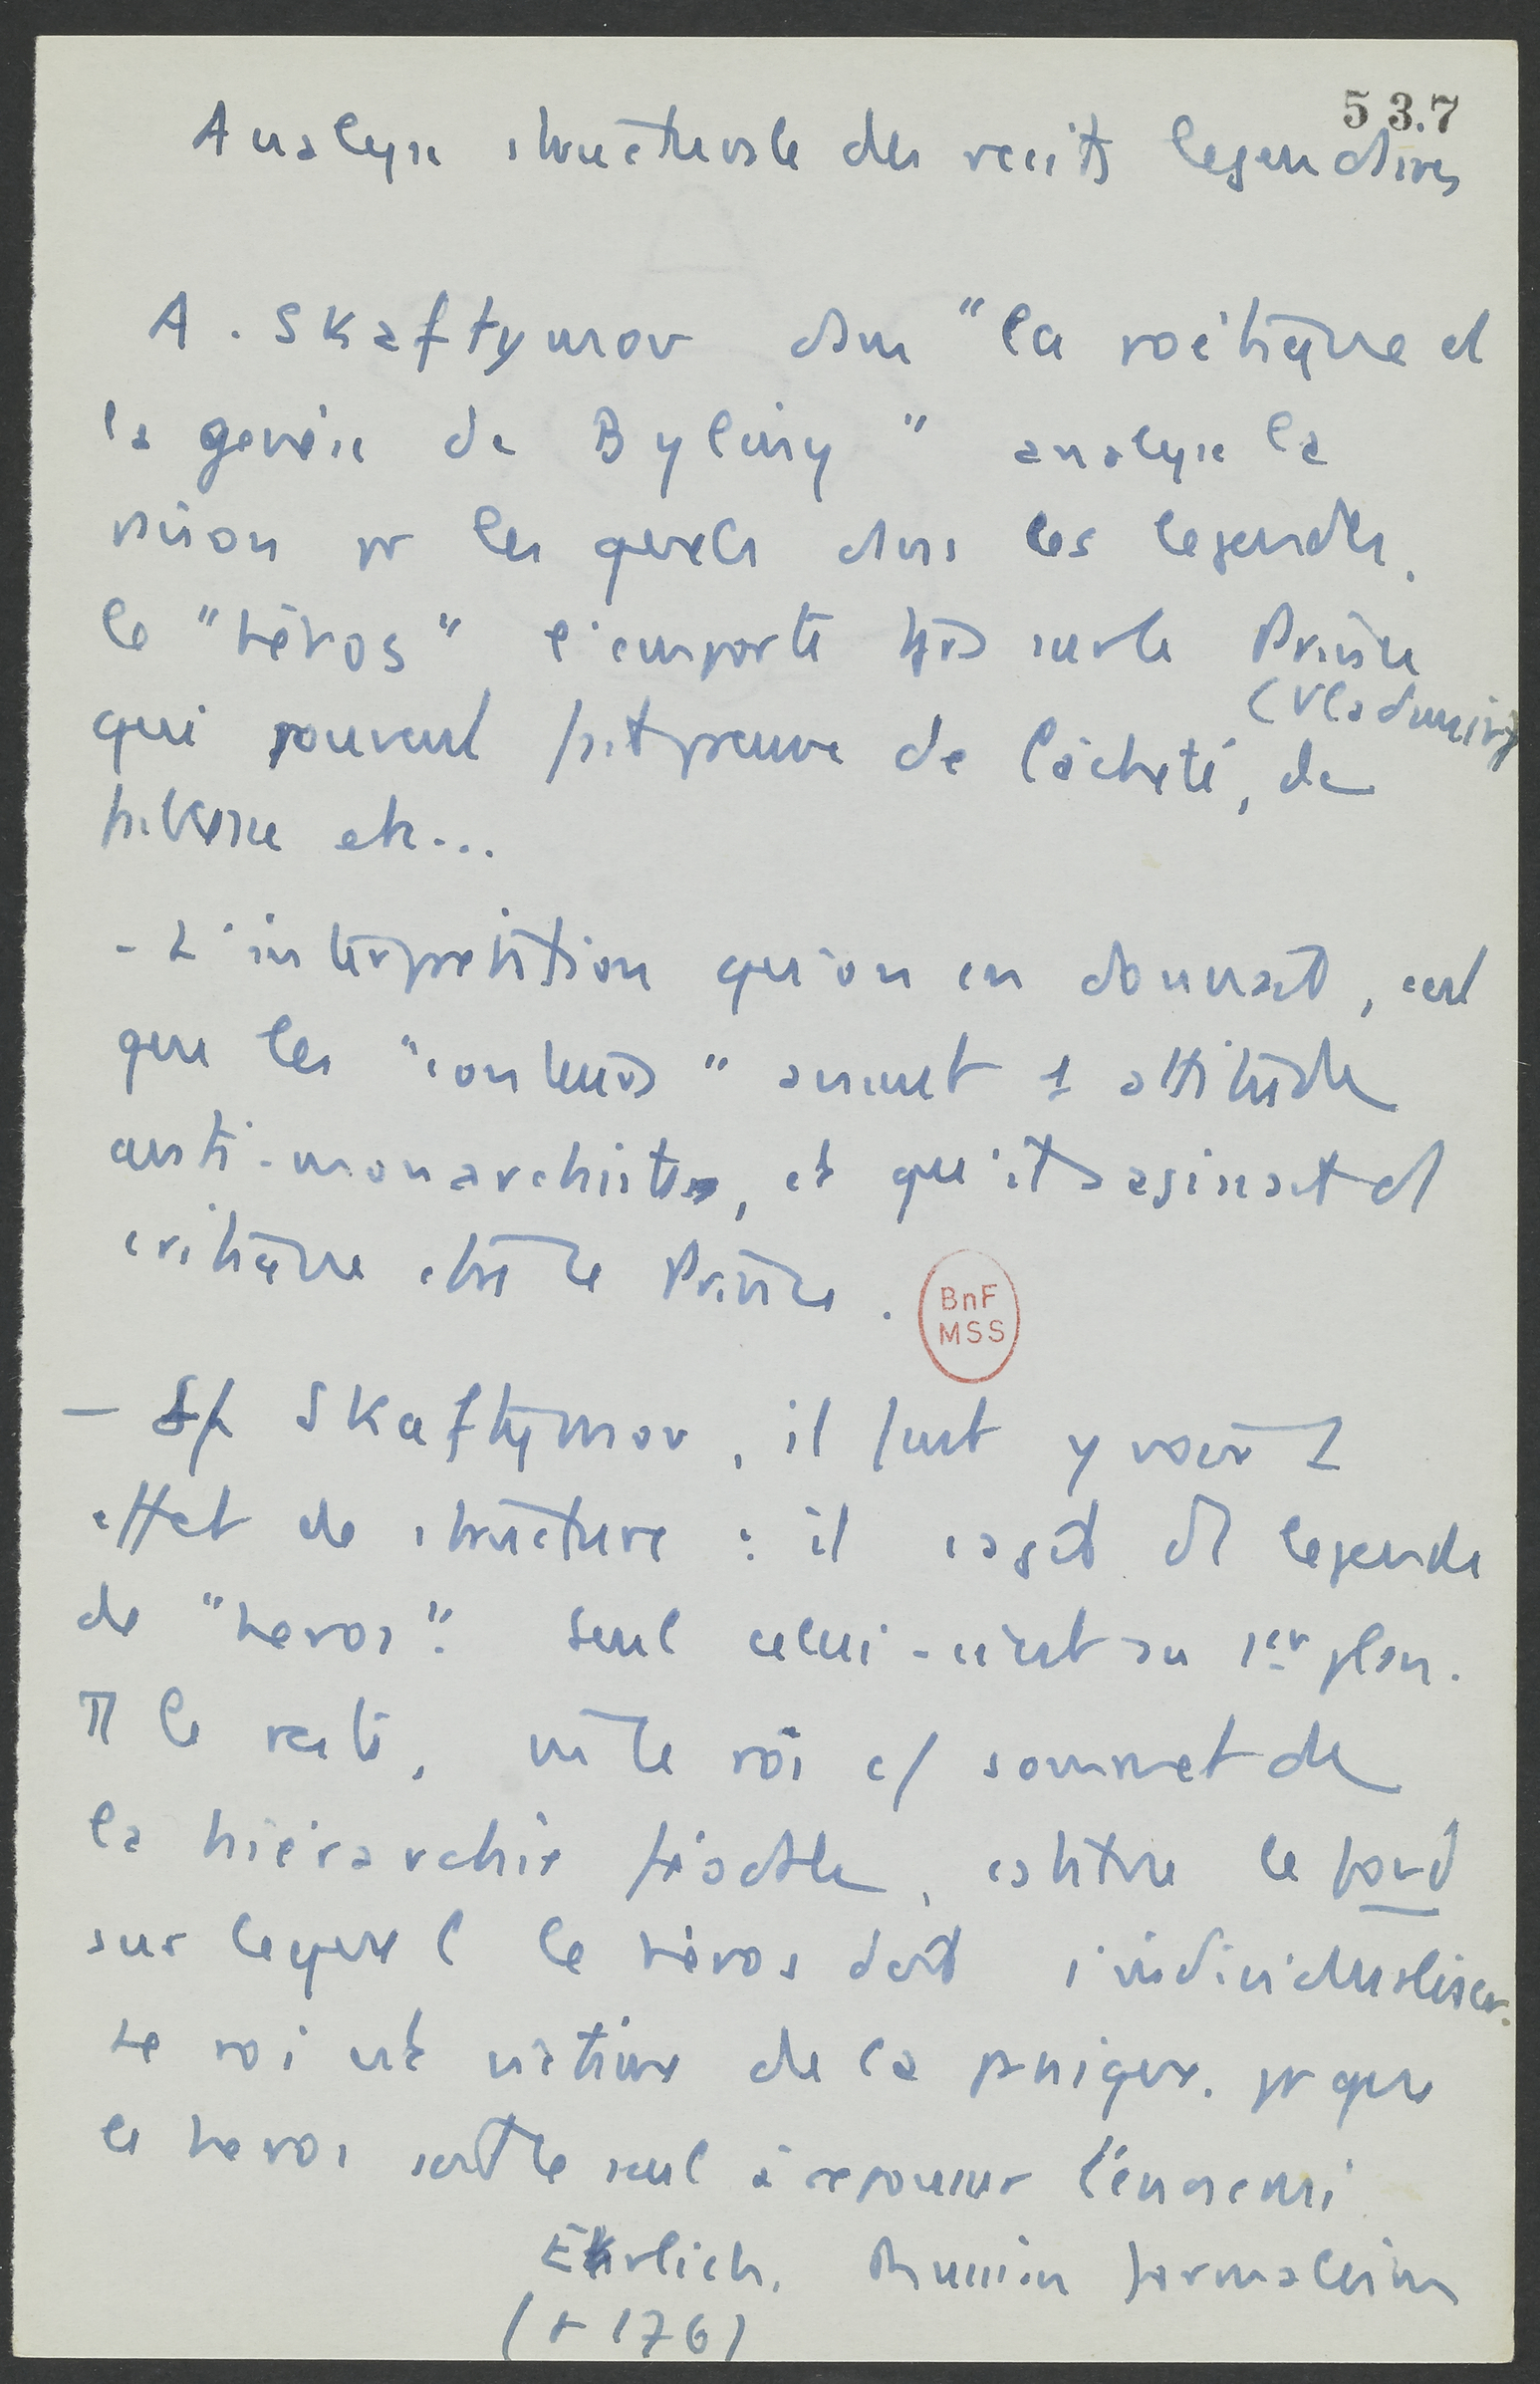 537
Analyse structurale des récits légendaires
A. Skaftymov dans "la poétique et
la genèse de Byliny" analyse la
raison pr lesquels dans les légendes,
le "héros" l'emporte tjrs sur le Prince
(Vladimir)
qui souvent fait preuve de lâcheté, de
etc...
- L'interprétation qu'on en donnait, c'est
que les "conteurs" avaient 1 attitude
anti-monarchiste, et qu'il s'agissait d'1
critique contre le Prince.
BnF
MSS
- Sf Skaftymov, il faut y voir 1
effet de structure : il s'agit d'1 légende
de "héros". Seul celui-ci est au 1er plan.
TT le reste, même le roi c/ sommet de
la hiérarchie féodale, constitue le fond
sur lequel le héros doit s'individualiser.
Le roi est victime de la panique, pr que
le héros soit le seul à repousser l'ennemi
Ehrlich. Russian formalism
(p 176)